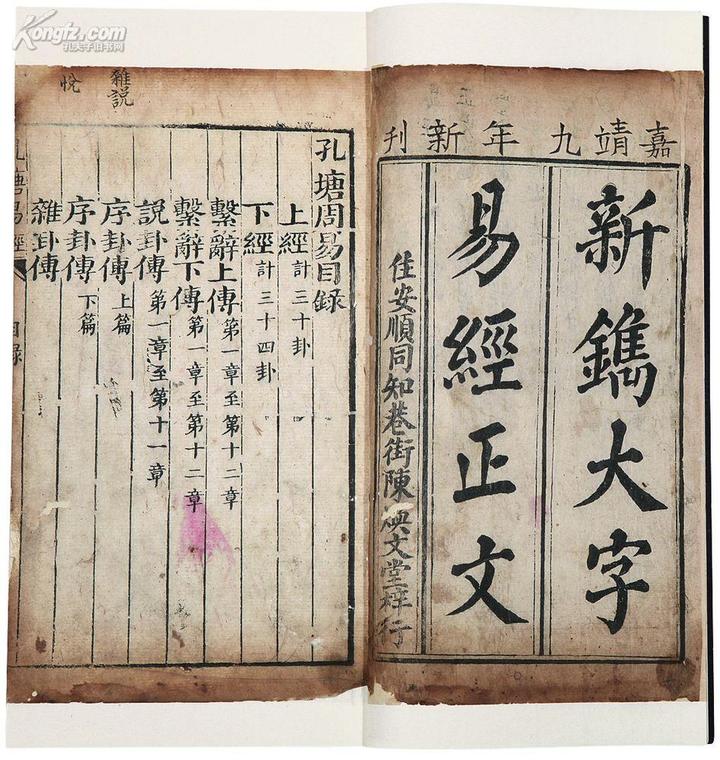 Kongfz.com
孔夫子旧书网
嘉靖九年新刊
新鐫大字
易經正文
住安順同知巷街陳奭文堂梓行
雜説
悅
孔塘周易目録
上經 計三十卦
下經 計三十四卦
繫辭上傳 第一章至第十二章
繫辭下傳 第一章至第十二章
説卦傳 第一章至第十一章
序卦傳 上篇
序卦傳 下篇
雜卦傳
孔塘易經 目録